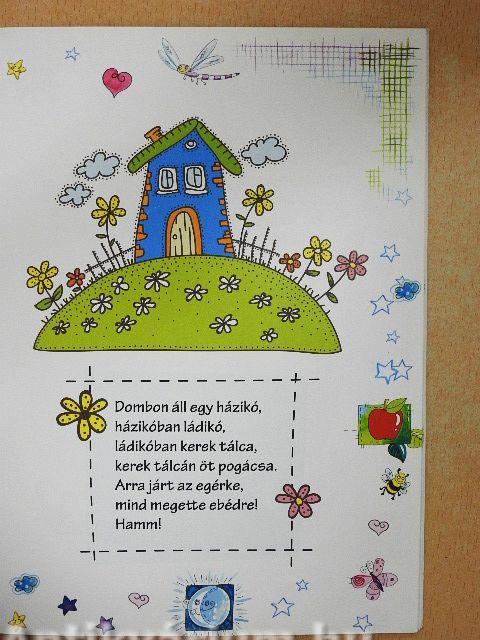 Dombon áll egy házikó,
házikóban ládikó,
ládikóban kerek tálca,
kerek tálcán öt pogácsa.
Arra járt az egérke,
mind megette ebédre!
Hamm!